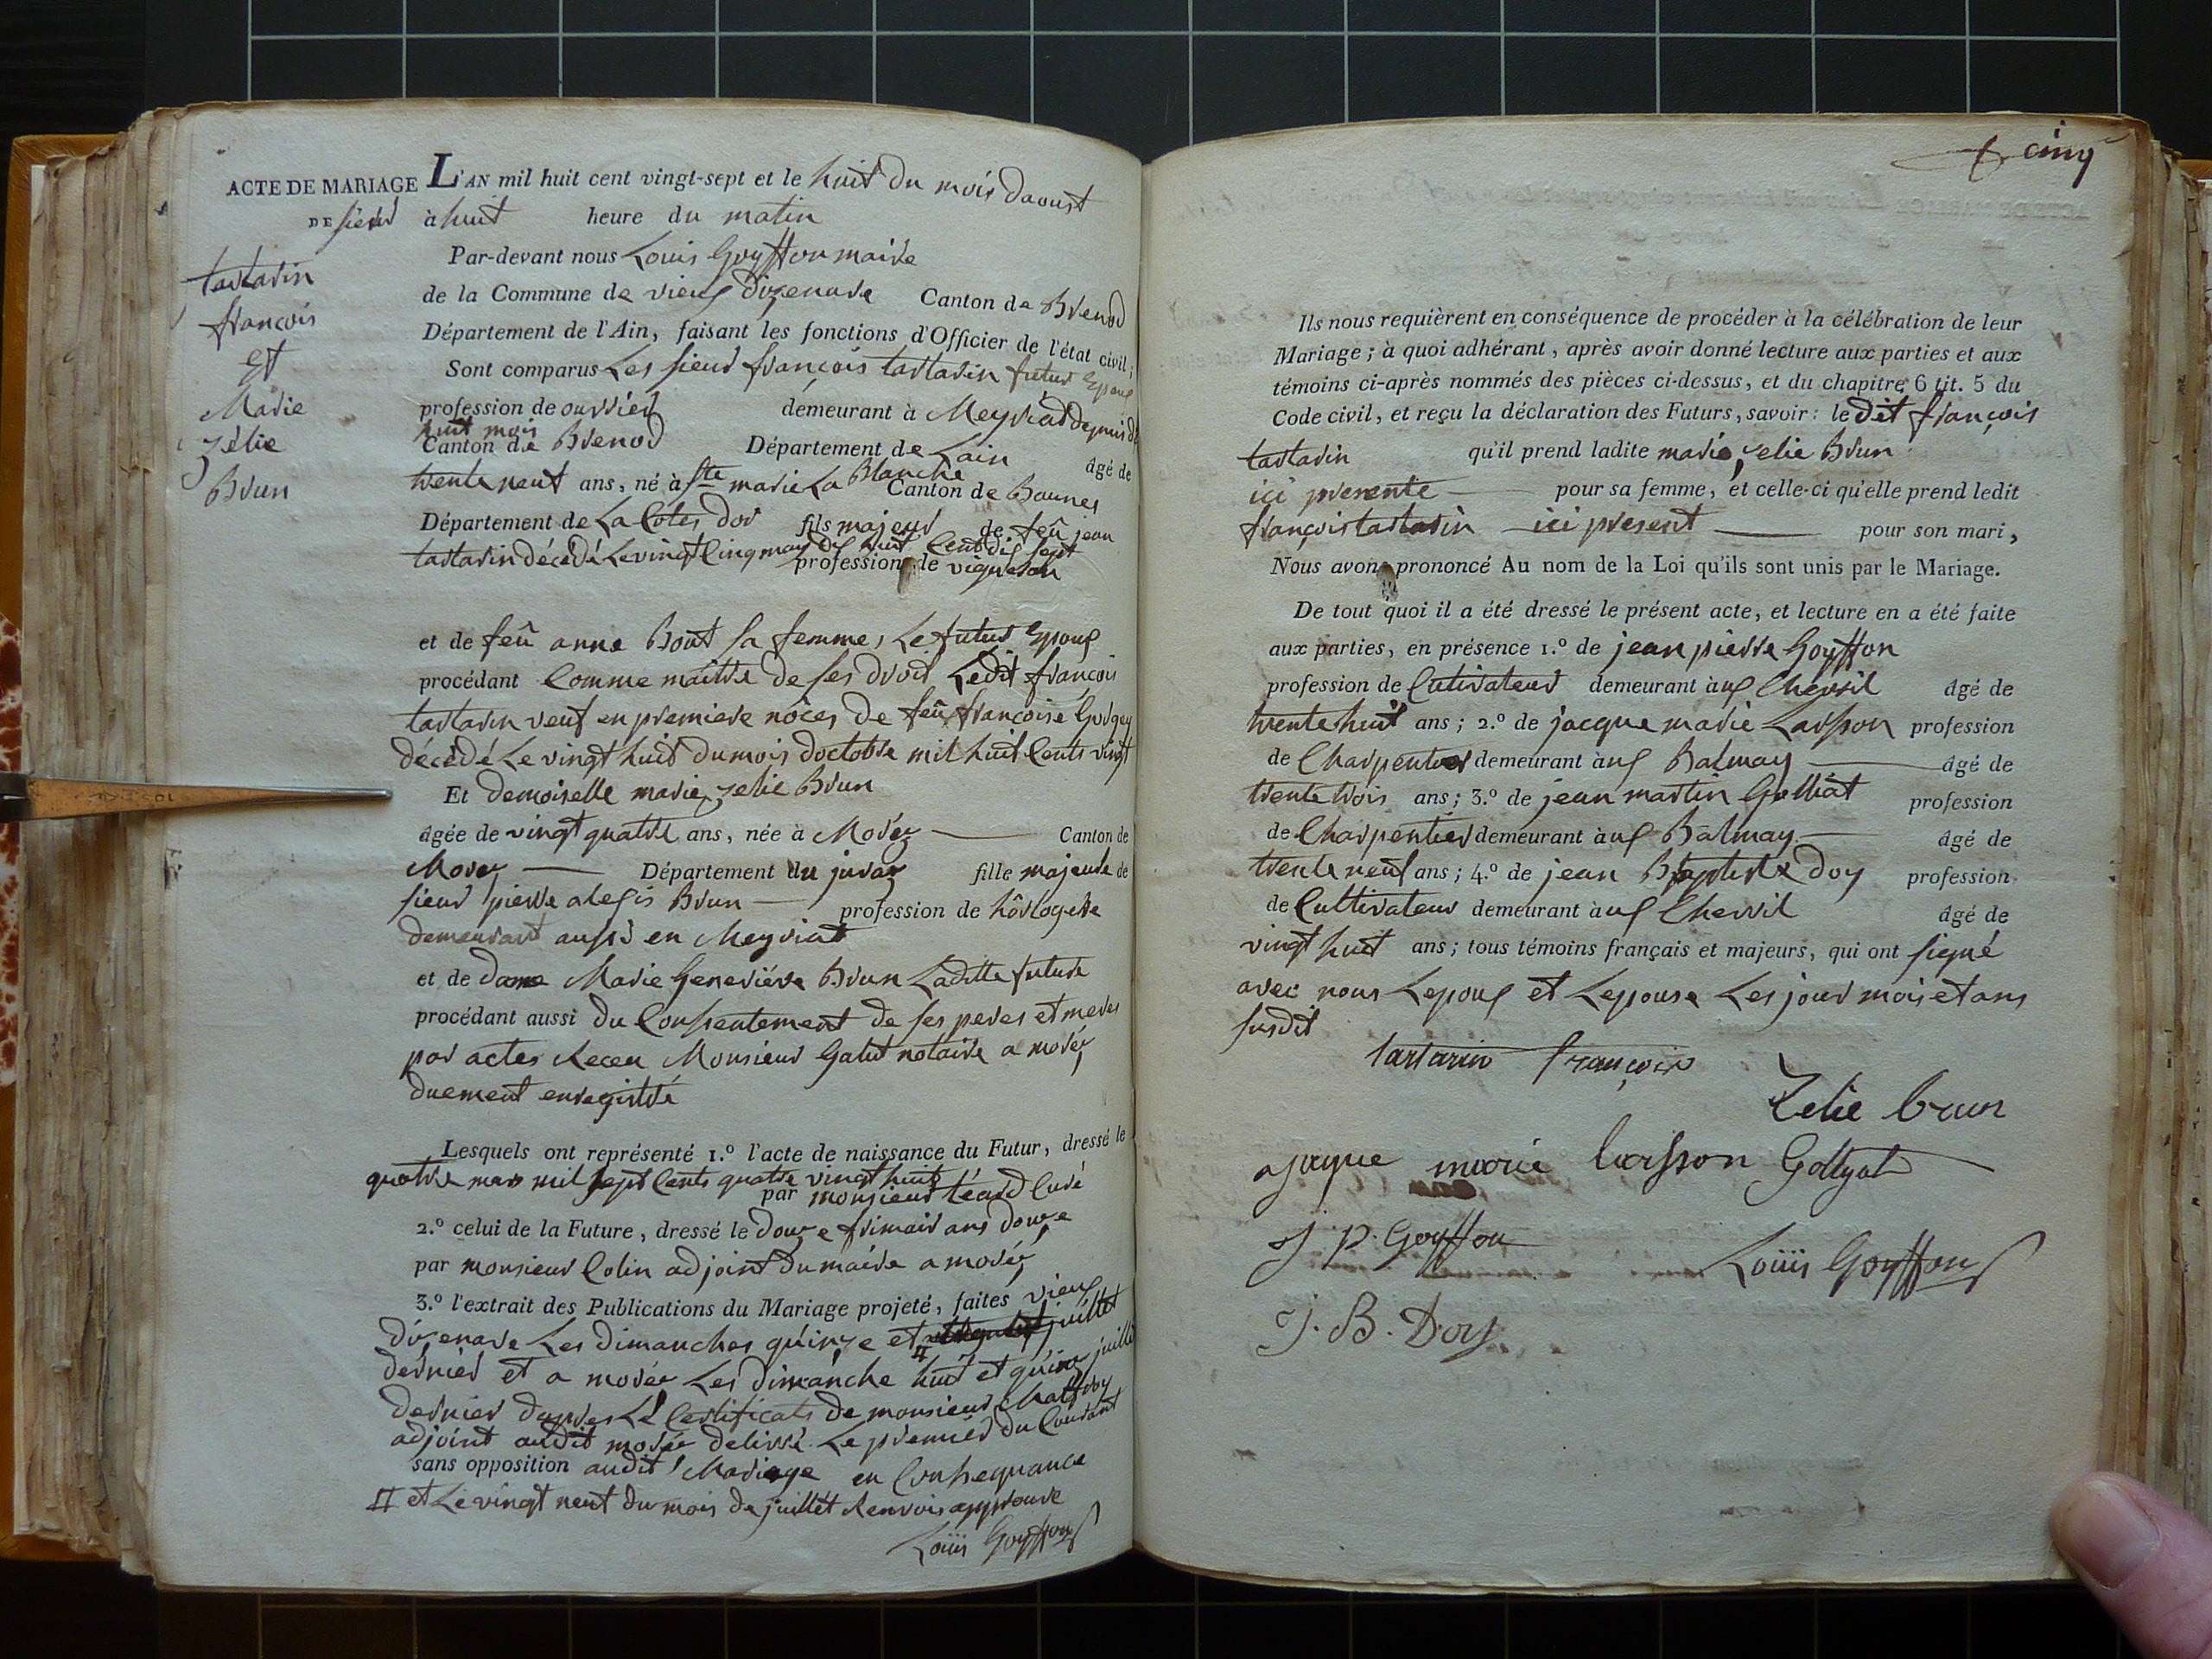 ACTE DE MARIAGE
DE sieur
tartarin
françois
et
Marie
zélie
Brun
L'AN mil huit cent vingt-sept et le huit du mois daoust
à huit heure du matin
Par-devant nous Louis Goyffon maire
de la Commune de vieux dizenave Canton de Brenod
Département de l'Ain, faisant les fonctions d'Officier de l'état civil;
Sont comparus Les sieur françois tartarin futur Epoux
profession de ouvrier demeurant à Meyriad depuis
huit mois
Canton de Brenod Département de Lain âgé de
trente neuf ans, né à Ste marie La Blanche Canton de Baunes
Département de La Cotes dor fils majeur de feû jean
tartarin décédé Le vingt Cinq may dix huit Cent dix sept
profession de vigneron
et de feû anne Bout sa femme, Le futur Epoux
procédant Comme maitre de ses droit Ledit françois
tartarin veuf en premiere nôces de feû françoise
décédé Le vingt huit du mois doctobre mil huit Cents vingt
Et demoiselle marie, zelie Brun
âgée de vingt quatre ans, née à Moréz Canton de
Morez Département du juraz fille majeure de
sieur pierre alexis Brun profession de hôrlogere
demeurant aussi en Meyriat
et de dame Marie Geneviéve Brun Laditte future
procédant aussi du Consentement de ses peres et meres
par actes Receu Monsieur Galut notaire a moréz
duement enregistré
Lesquels ont représenté 1.º l'acte de naissance du Futur, dressé le
quatre mars mil sept Cents quatre vingt huit
par monsieur Curé
2.º celui de la Future, dressé le douze frimair ans douze
par monsieur Colin adjoint du maire a moréz
3.º l'extrait des Publications du Mariage projeté, faites vieux
dizenave Les dimanches quinze et # juillet
dernier et a moréz Les dimanche huit et quinz juillet
dernier dapres Le Certificats de monsieur
adjoint audit moréz delivré Le premier du Courant
sans opposition audit Mariage en Consequance
# et Le vingt neuf du mois de juillét Renvois approuve
Loüis Goyffon
cinq
Ils nous requièrent en conséquence de procéder à la célébration de leur
Mariage; à quoi adhérant, après avoir donné lecture aux parties et aux
témoins ci-après nommés des pièces ci-dessus, et du chapitre 6 tit. 5 du
Code civil, et reçu la déclaration des Futurs, savoir: le dit françois
tartarin qu'il prend ladite marie, zelie Brun
ici presente pour sa femme, et celle-ci qu'elle prend ledit
françois tartarin ici present pour son mari,
Nous avons prononcé Au nom de la Loi qu'ils sont unis par le Mariage.
De tout quoi il a été dressé le présent acte, et lecture en a été faite
aux parties, en présence 1.º de jean pierre Goyffon
profession de Cutivateur demeurant à aux Chevril âgé de
trente huit ans; 2.º de jacque marie Larsson profession
de Charpentier demeurant à aux Balmay âgé de
trente trois ans; 3.º de jean martin Golliat profession
de Charpentier demeurant à aux Balmay âgé de
trente neuf ans; 4.º de jean Baptiste doy profession
de Cultivateur demeurant à aux Chevril âgé de
vingt huit ans; tous témoins français et majeurs, qui ont signé
avec nous Lepoux et Lepouse Les jour mois et ans
susdit
tartarin françois
Zelie brun
jaque marie larsson Gollyat
J. P. Goyffon
Loüis Goyffon
J. B. Doy